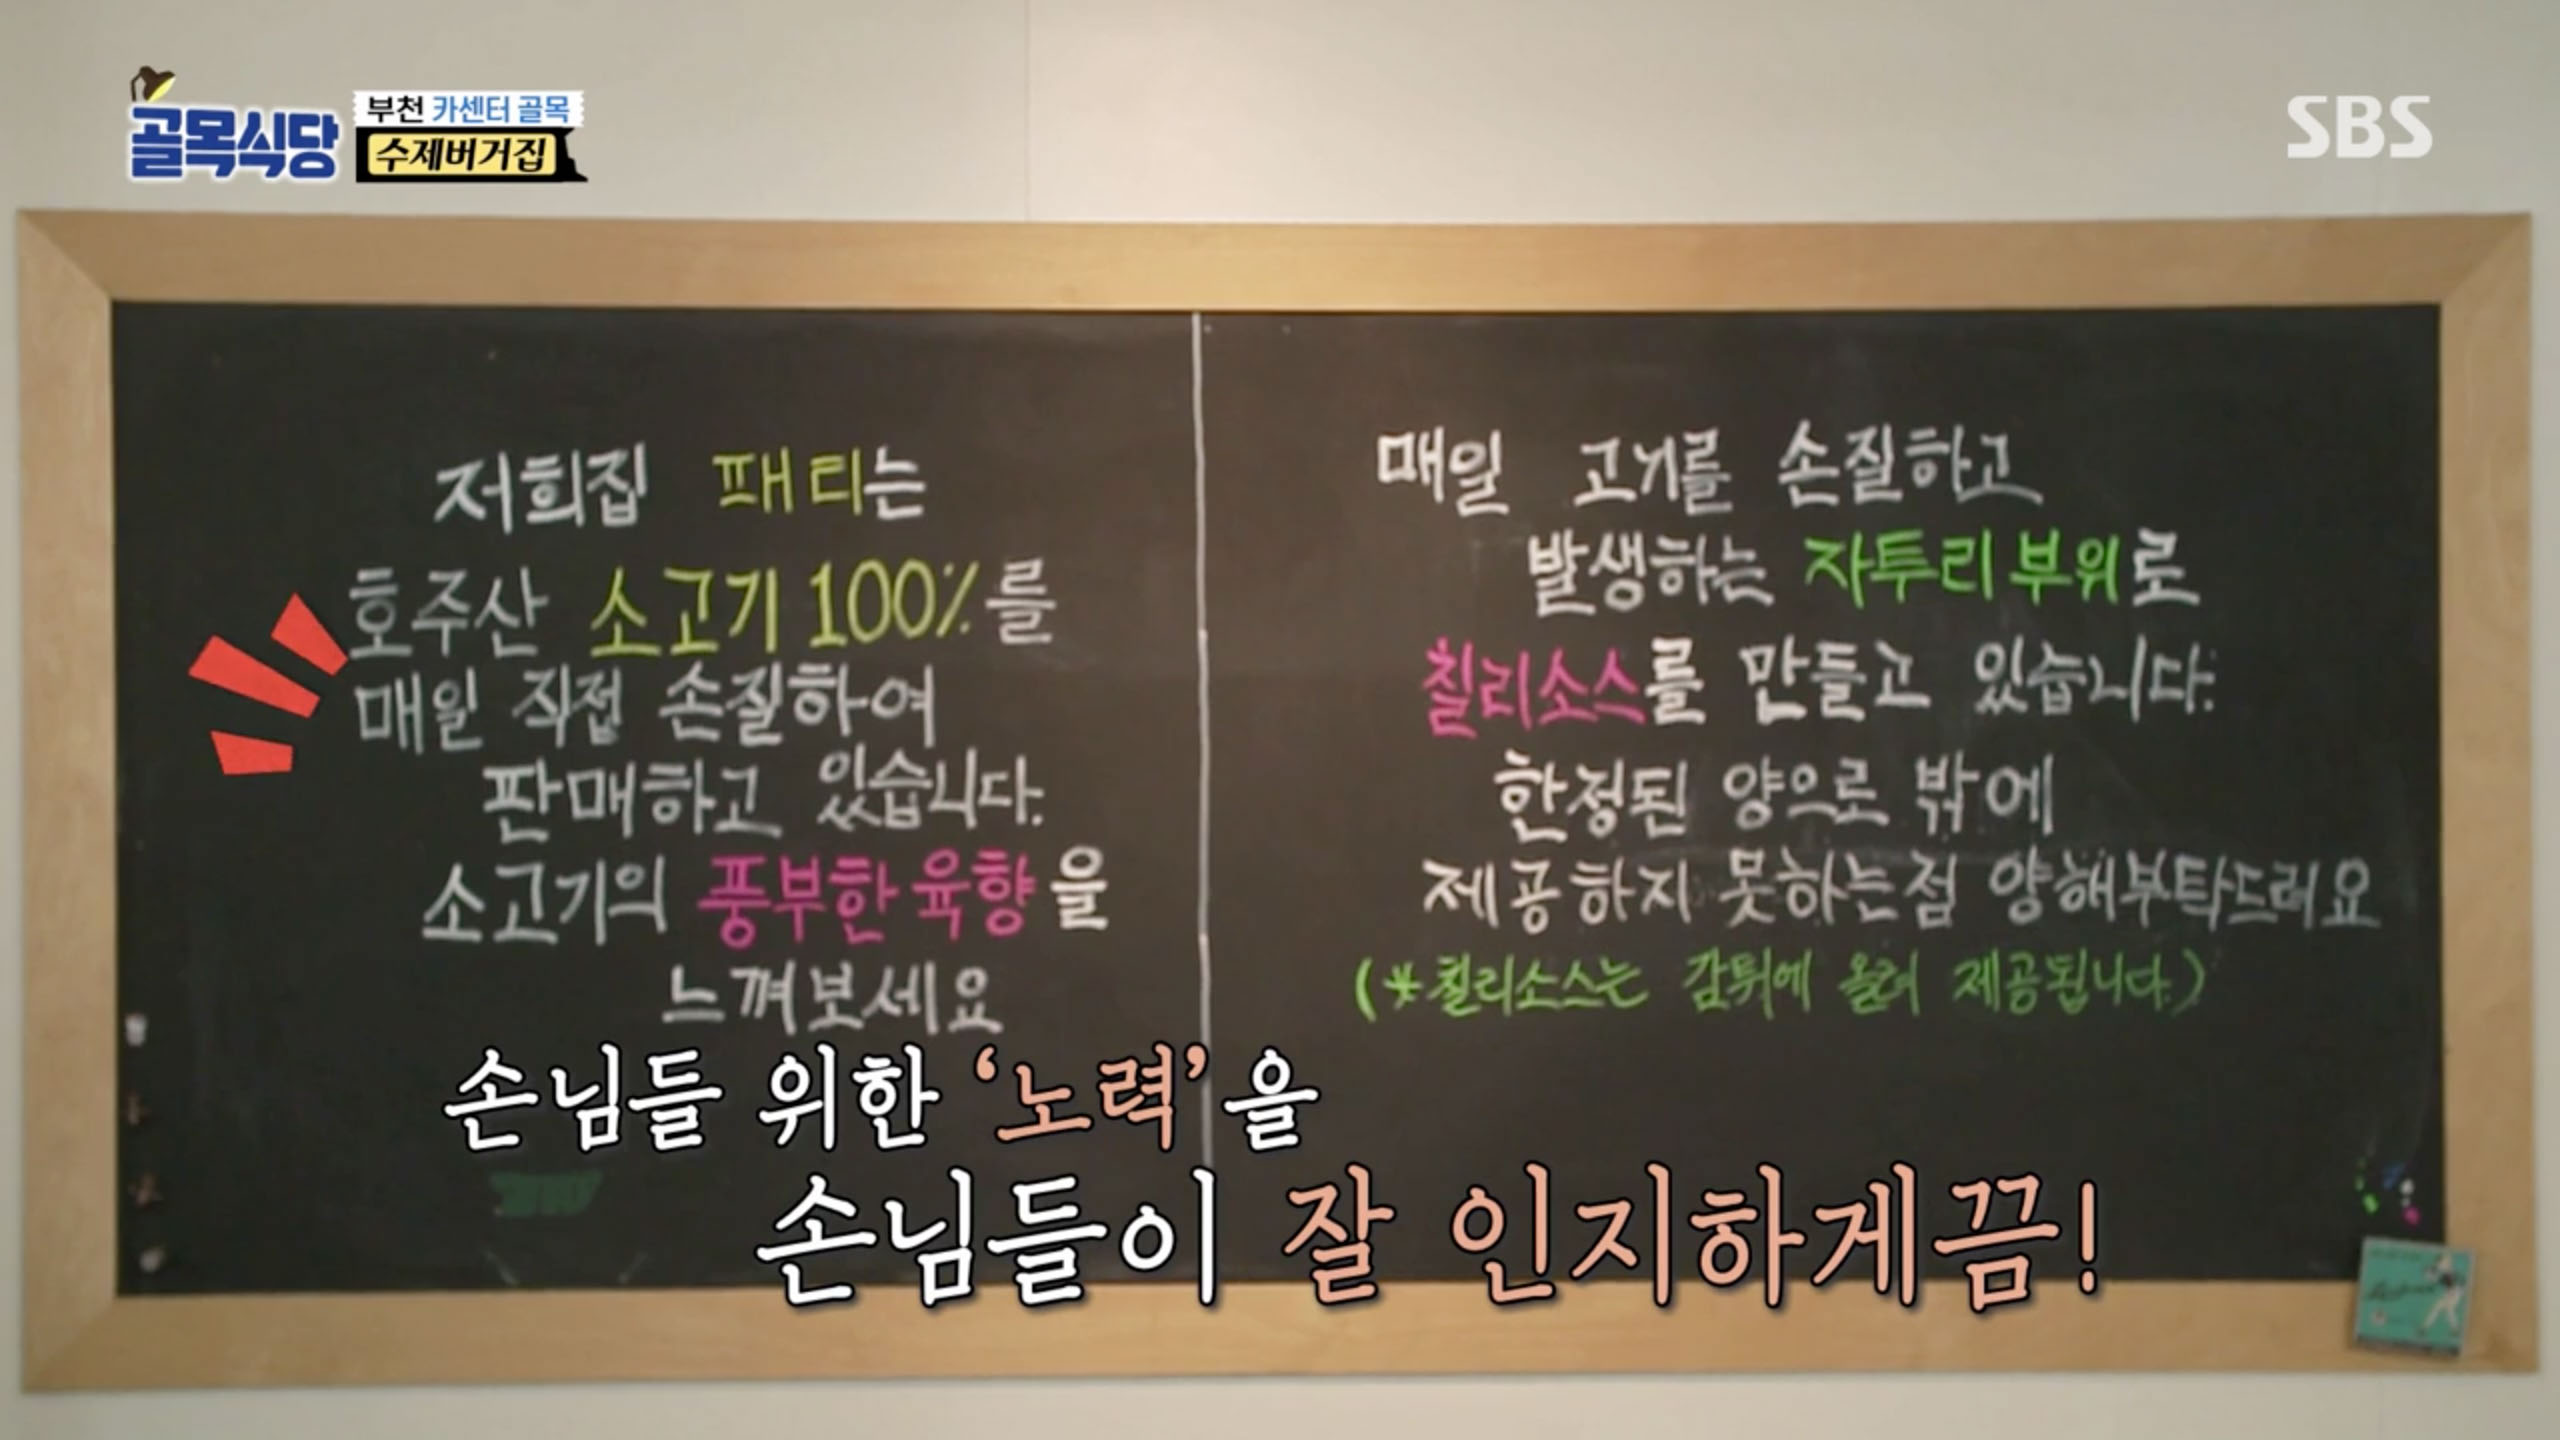 골목식당
부천 카센터 골목
수제버거집
SBS
저희집 패티는
호주산 소고기 100%를
매일 직접 손질하여
판매하고 있습니다.
소고기의 풍부한 육향을
느껴보세요
매일 고기를 손질하고
발생하는 자투리 부위로
칠리소스를 만들고 있습니다.
한정된 양으로 밖에
제공하지 못하는점 양해부탁드려요
(*칠리소스는 감튀에 올려 제공됩니다.)
손님들 위한 '노력'을
손님들이 잘 인지하게끔!